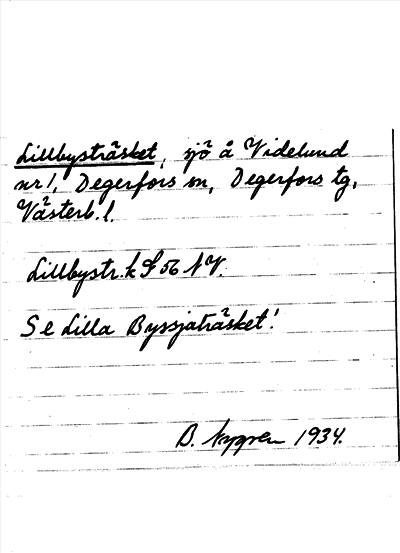 Lillbyträsket, sjö å Videlund
nr 1, Degerfors sn, Degerfors tg,
Västerb. l.
Lillbystr. k S 56 NV.
Se Lilla Byssjaträsket!
B. Nygren 1934.